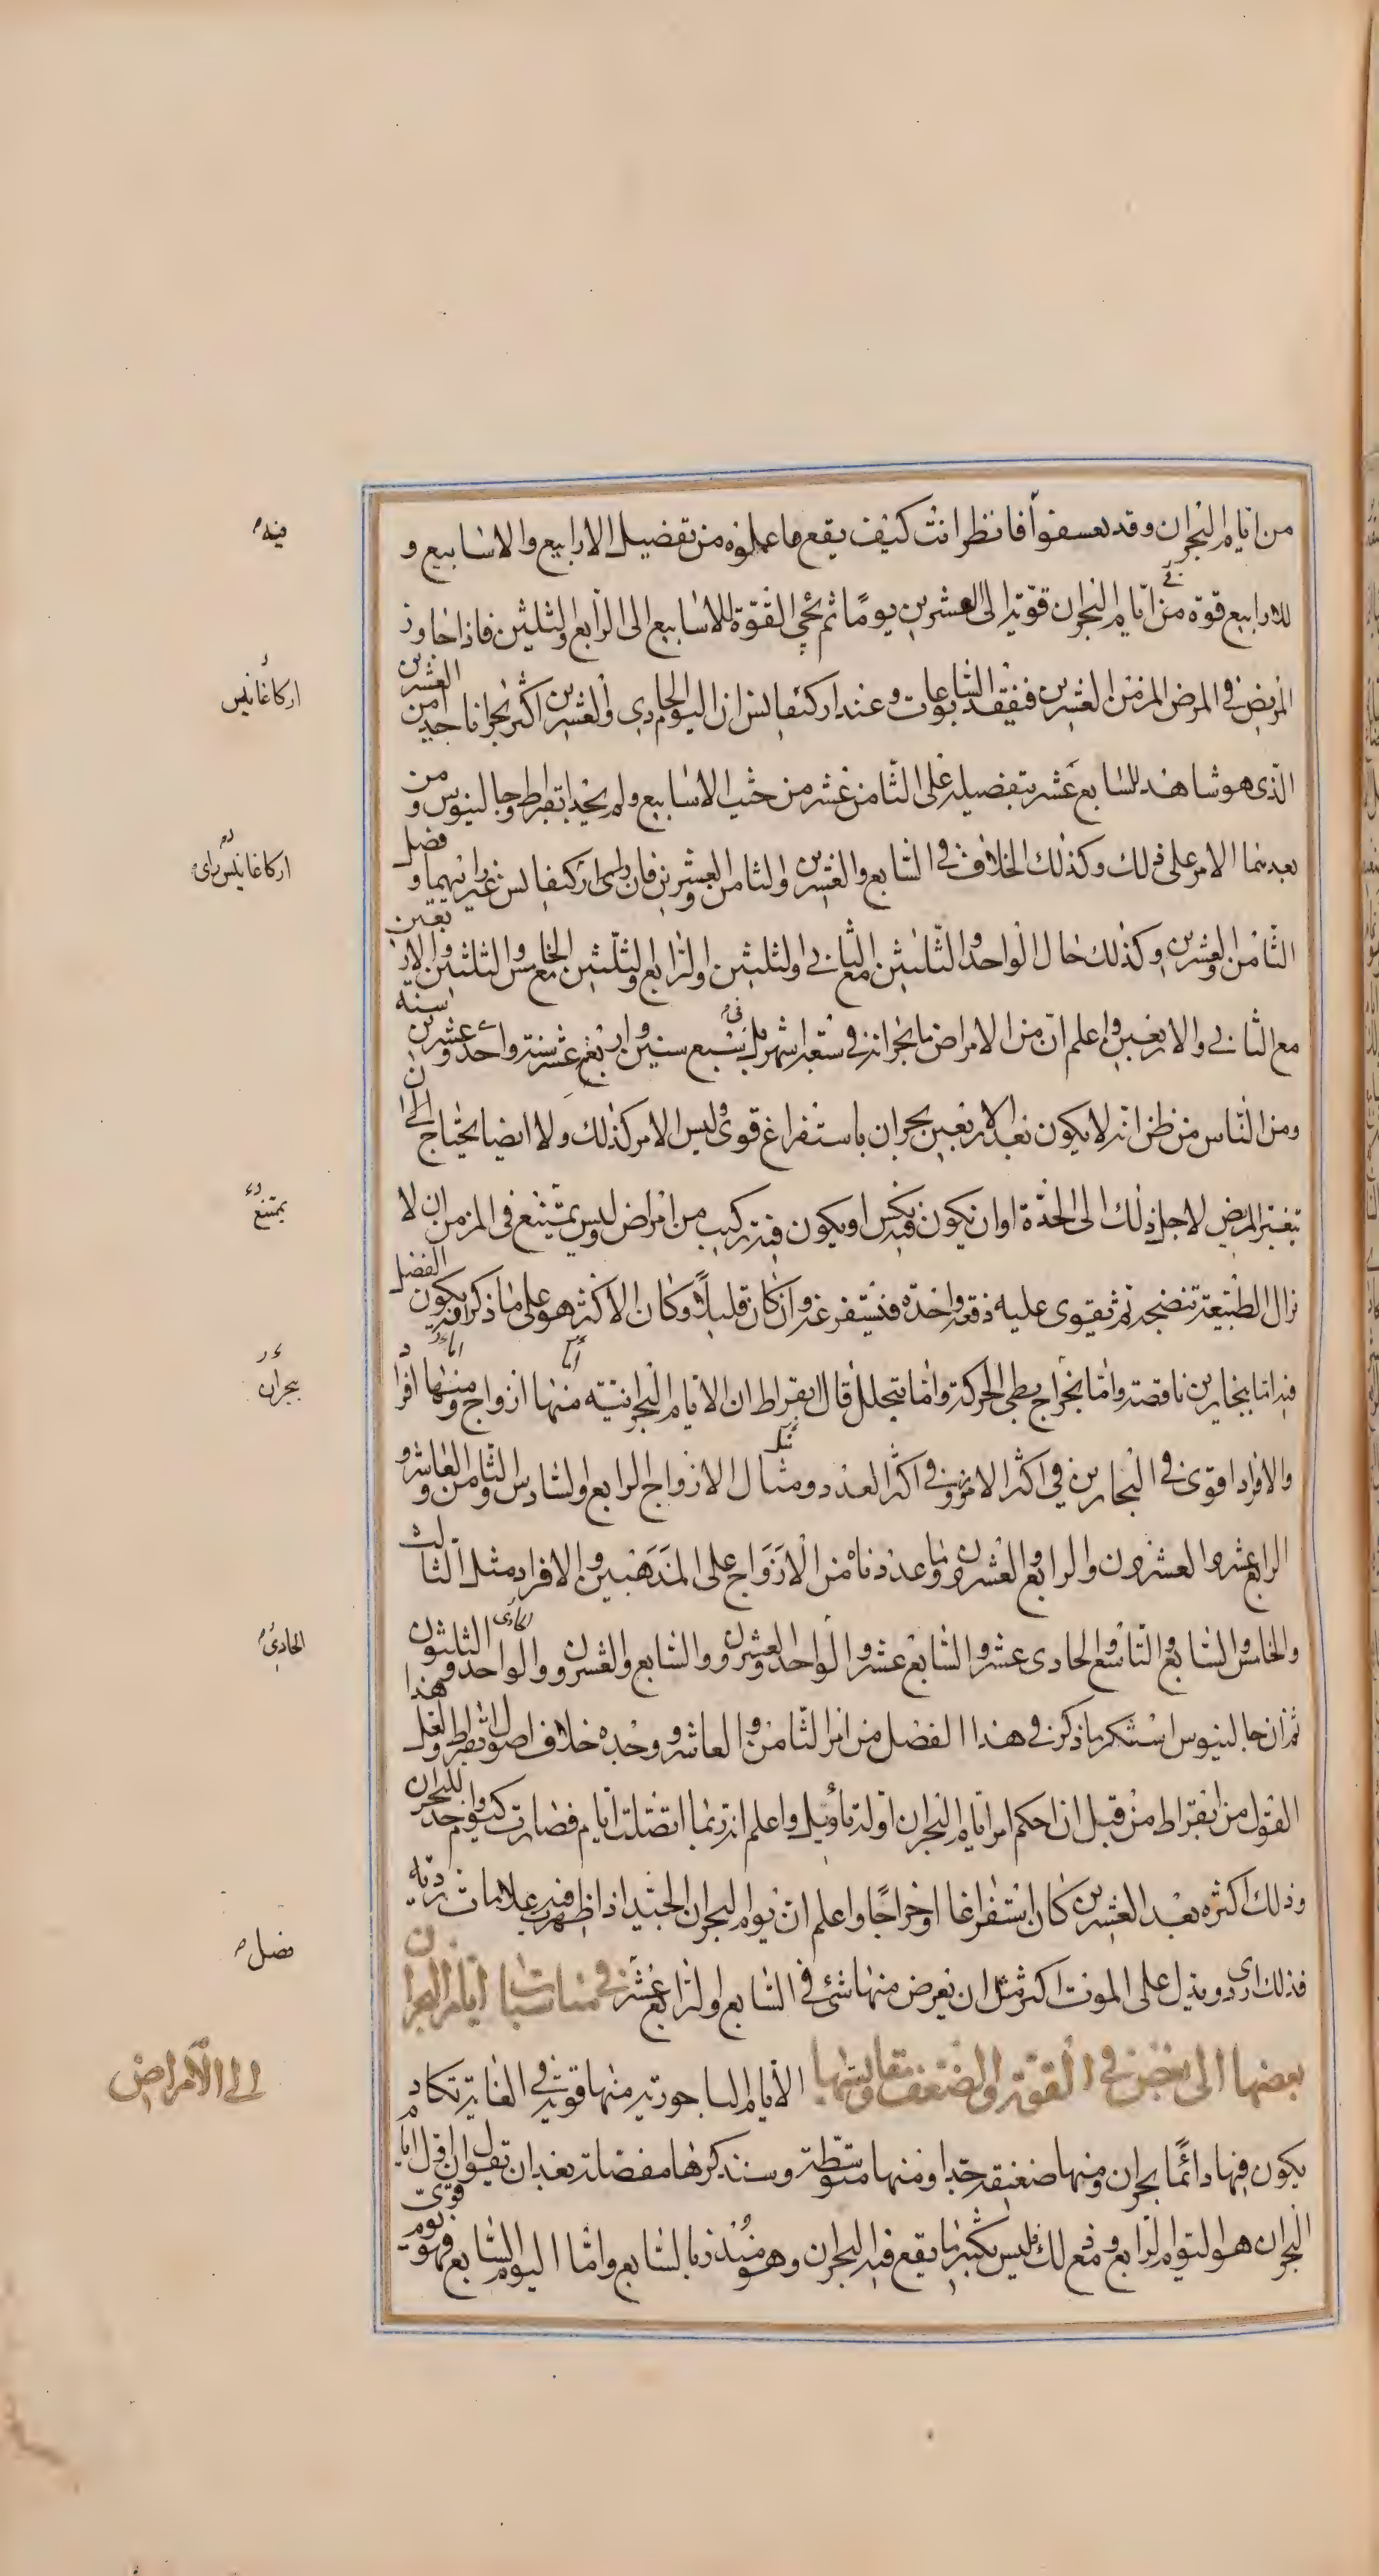 من ايام البحران وقد تعسفوا فانظر انت كيف يقع ما عملوه من تفضيل الارابيع والاسابيع و
فيه
للارابيع قوة من ايام البحران قوية الى العشرين يوما ثم تجي القوة للاسابيع الى الرابع والثلثين فاذا جاوز
المريض في المرض المزمن العشرين فتفقد السابوعات وعند اركيغانس ان اليوم الحادي والعشرين اكثر بحرانا جيدا من العشرين
اركاغانيس
الذي هو شاهد للسابع عشر بتفضيله على الثامن عشر من حيث الاسابيع ولم يجد ابقراط وجالينوس ومن
بعدهما الامر على ذلك وكذلك الخلاف في السابع والعشرين والثامن والعشرين فان راى اركيغانس غير رايهما وفضل
اركاغانيس راى
الثامن والعشرين وكذلك حال الواحد والثلثين مع الثاني والثلثين والرابع والثلثين مع الخامس والثلثين والاربعين
مع الثاني والاربعين واعلم ان من الامراض ما بحرانه في سبعة اشهر بل في سبع سنين واربع عشر سنة واحد وعشرين سنة
ومن الناس من ظن انه لا يكون بعد الاربعين بحران باستفراغ قوي وليس الامر كذلك ولا ايضا يحتاج الى ان
يتغير المريض لاجل ذلك الى الحدة او ان يكون فيه نكس او يكون فيه تركيب من امراض وليس يمتنع في المزمن ان لا
يمتنع
تزال الطبيعة تنضجه ثم تقوى عليه دفعة واحدة فتستفرغه وان كان قليلا وكان الاكثر هو على ما ذكر ويكون الفضل
فيه اما ببحارين ناقصة واما بخراج بطي الحركة واما بتحلل قال ابقراط ان الايام البحرانية منها ازواج ومنها افراد
بحران
والافراد اقوى في البحارين في اكثر الامر وفي اكثر العدد ومثال الازواج الرابع والسادس والثامن والعاشر و
الرابع عشر والعشرون والرابع والعشرون وما عددناه من الازواج على المذهبين والافراد مثل الثالث
والخامس والسابع والتاسع والحادي عشر والسابع عشر والواحد والعشرون والسابع والعشرون والواحد والثلثون
الحادي
ثم ان جالينوس استنكر ما ذكر في هذا الفصل من امر الثامن والعاشر ووجده خلاف اصول ابقراط ولعل هذا
القول من ابقراط من قبل ان احكم امر ايام البحران او له تاويل واعلم انه ربما اتصلت ايام فصارت كيوم واحد للبحران
وذلك اكثره بعد العشرين كان استفراغا او خراجا واعلم ان يوم البحران الجيد اذا ظهرت فيه علامات ردية
فذلك اردى ويدل على الموت اكثر مثل ان يعرض منها شئ في السابع او الرابع عشر في مناسبات ايام البحران
فصل
بعضها الى بعض في القوة والضعف ومقايستها الايام الباحورية منها قوية في الغاية تكاد
الى الامراض
يكون فيها دائما بحران ومنها ضعيفة جدا ومنها متوسطة وسنذكرها مفصلة بعد ان نقول ان اول ايام
البحران هو اليوم الرابع ومع ذلك فليس بكثير ما يقع فيه البحران وهو منذر بالسابع واما اليوم السابع فهو يوم قوي